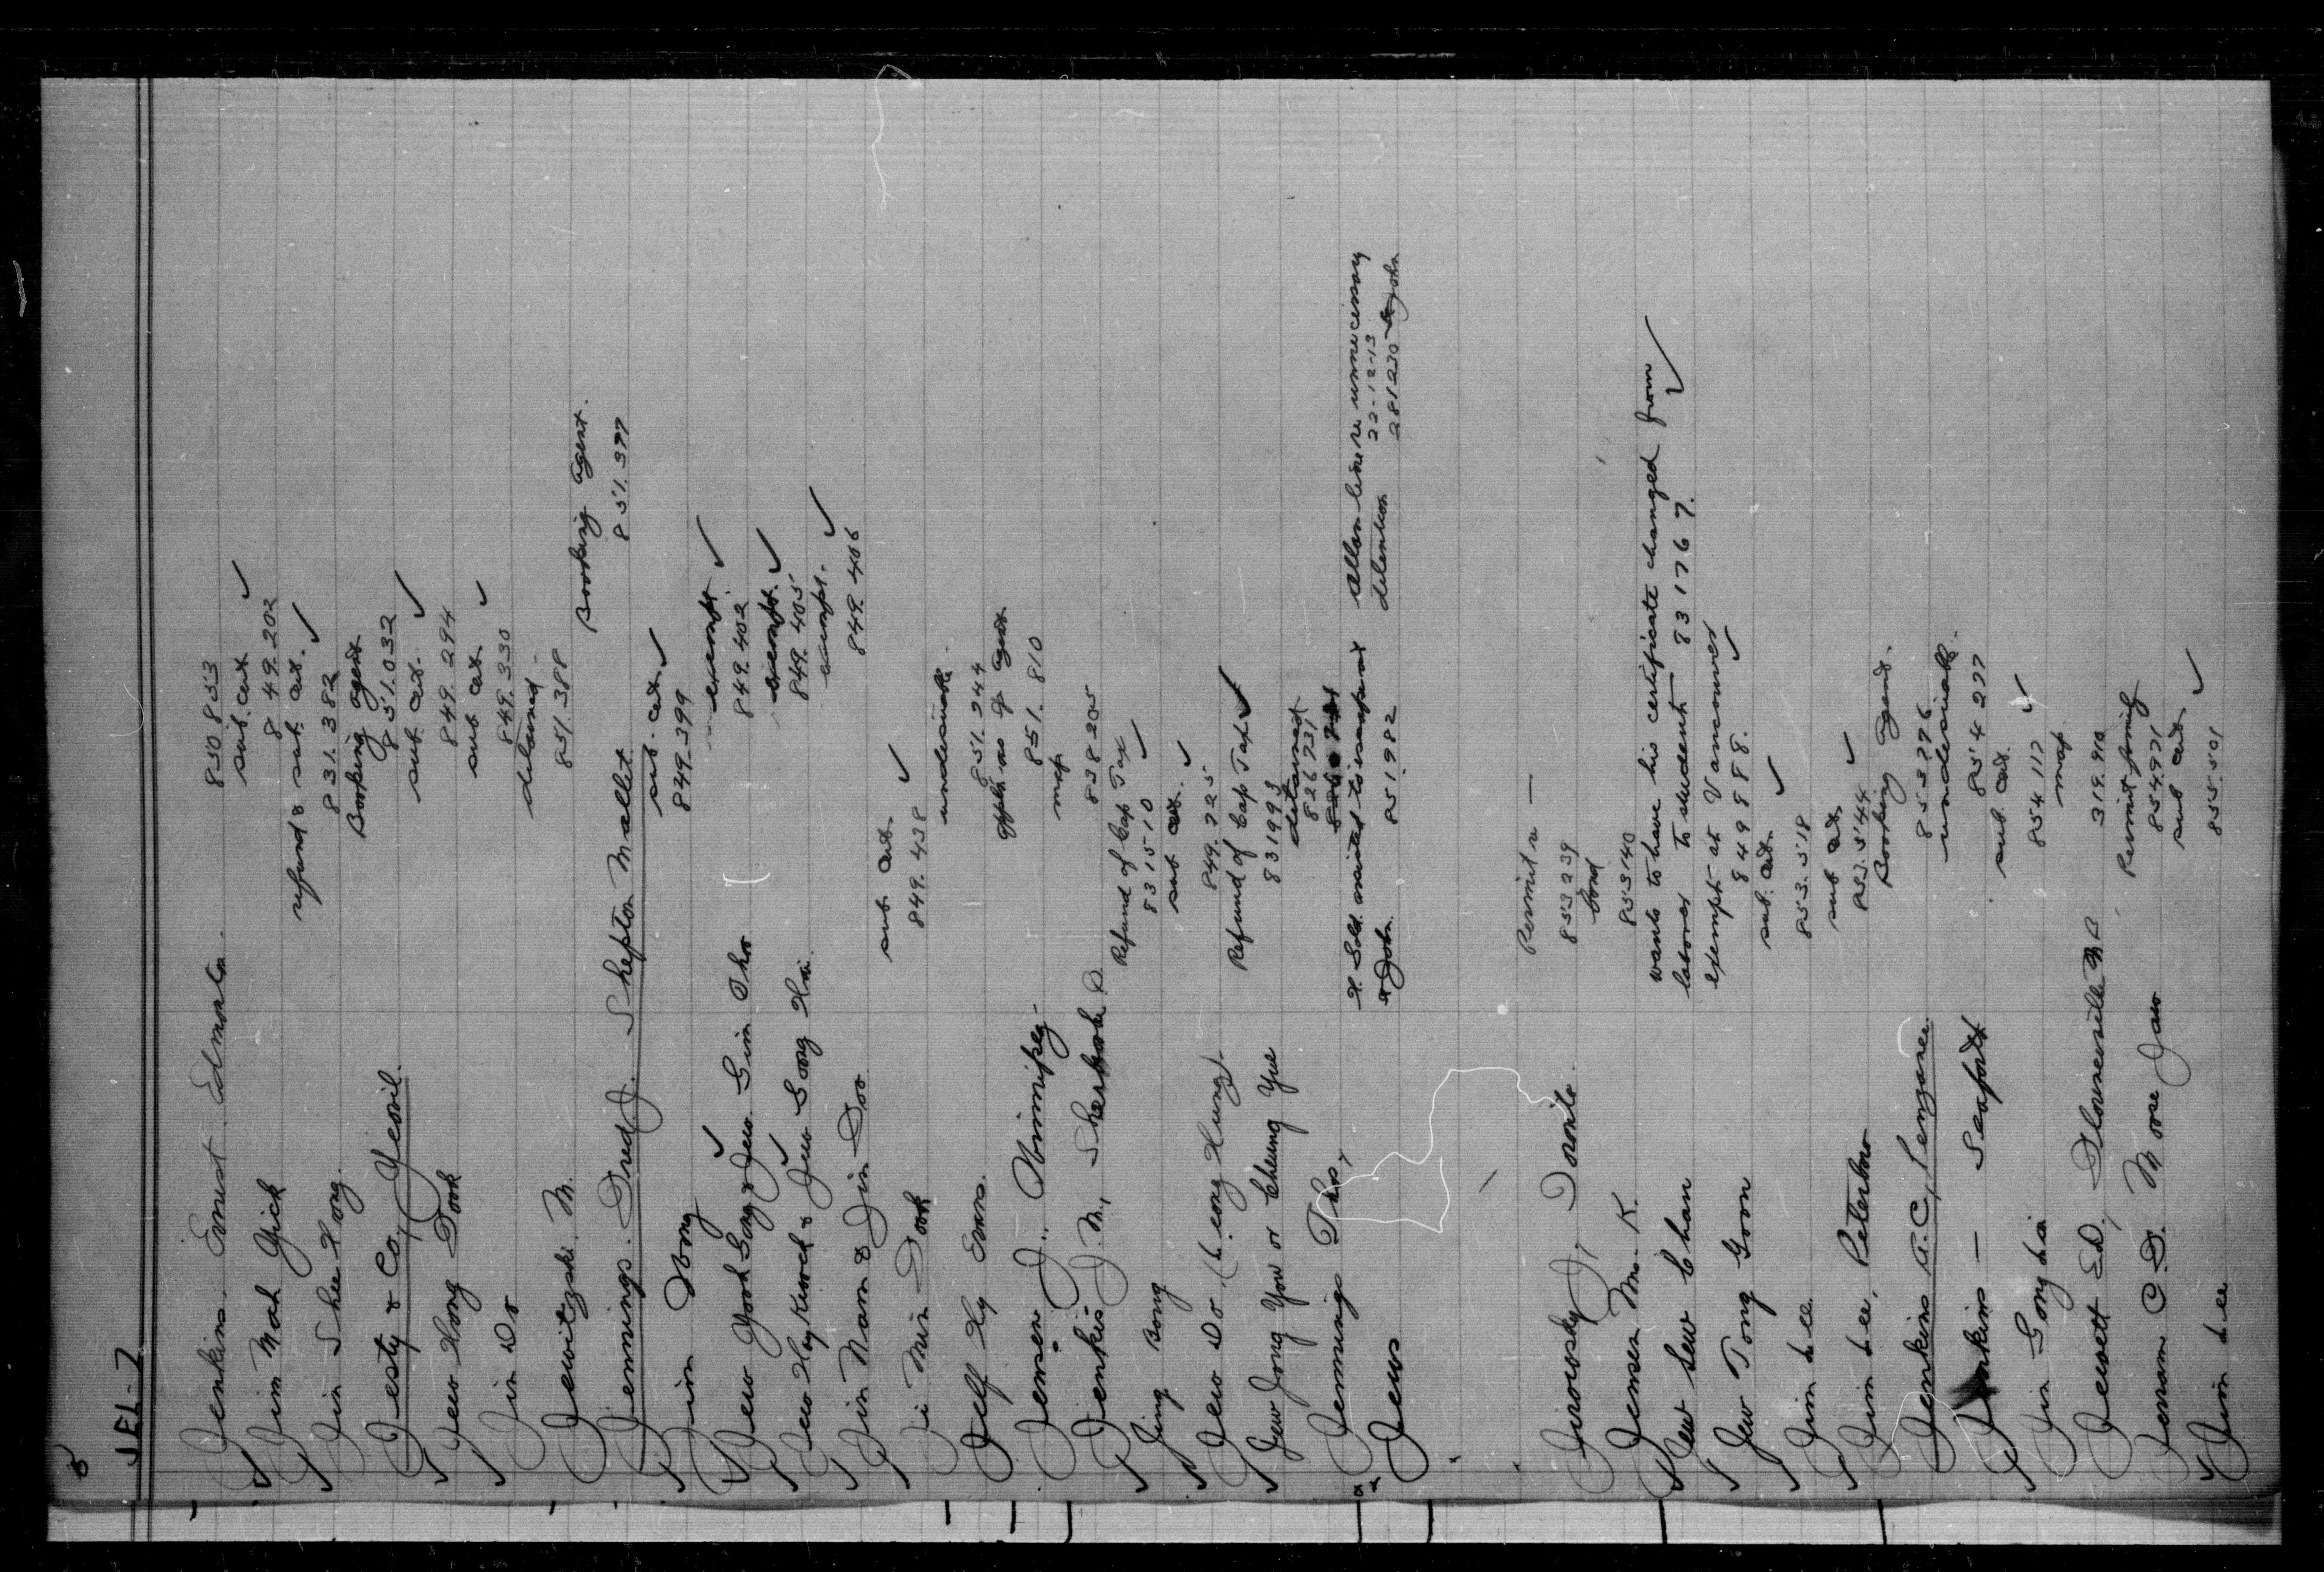 8
JEL-7
Jenkins, Ernest, Edmonton. 850853
Jim Mah Yick sub. cert ✓
849.202
Jin Shee Hong. refund & sub. cert. ✓
831.382
Jesty & Co, Yeovil. Booking agent
851.032
Jew Hong Took sub. cert. ✓
849.294
Jin Do sub cert ✓
849.330
Jewitzski, M. detained.
851.388
Jennings. Fred J. Shepton Mallet. Booking agent.
851.397
Jim Wong sub. cert. ✓
849.399
Jew Yook Song & Jew Gim Tho exempt. ✓
849.402
Jew Hoy Kwock & Jew Soong exempt. ✓
849.405
Jin Nam & Jin Foo exempt. ✓
849.406
Ji Min Took sub cert. ✓
849.438
Jelf Hy Evans. undesirable.
851.244
Jensen, J., Winnipeg appln as of agent
851.810
Jenkis J. M., Sherbrooke map
838205
Jing Bong Refund of Cap Tax
831510 ✓
Jew Do (Leong Hung) sub cert. ✓
849.225
Jew Jong You or Cheung Yue Refund of Cap Tax ✓
831993
Jennings Thos, detained
826731
Jews H. Sold. assisted to inseparat Allan line re unnecessary
St John 851982 detention 22-12-13
281230 St John
Jurowsky J, Toronto. Permit re —
853239
Jensen Mr. K. bond
853140
Jew Sew Chan wants to have his certificate changed from
laborer to student 831767. ✓
Jew Tong Goon exempt at Vancouver
849988. ✓
Jim Lee. sub. cert. ✓
853.518
Jim Lee, Peterboro sub cert, ✓
853.544
Jenkins A. C, Penzance. Booking agent.
853776
Jenkins — Seaforth undesirable.
854277
Jin Song Lai sub. cert. ✓
854117
Jewett E.D, Florenceville N B map
319.910
Jeram C. D. Moose Jaw Permit family
854971
Jim Lee sub cert ✓
855.501